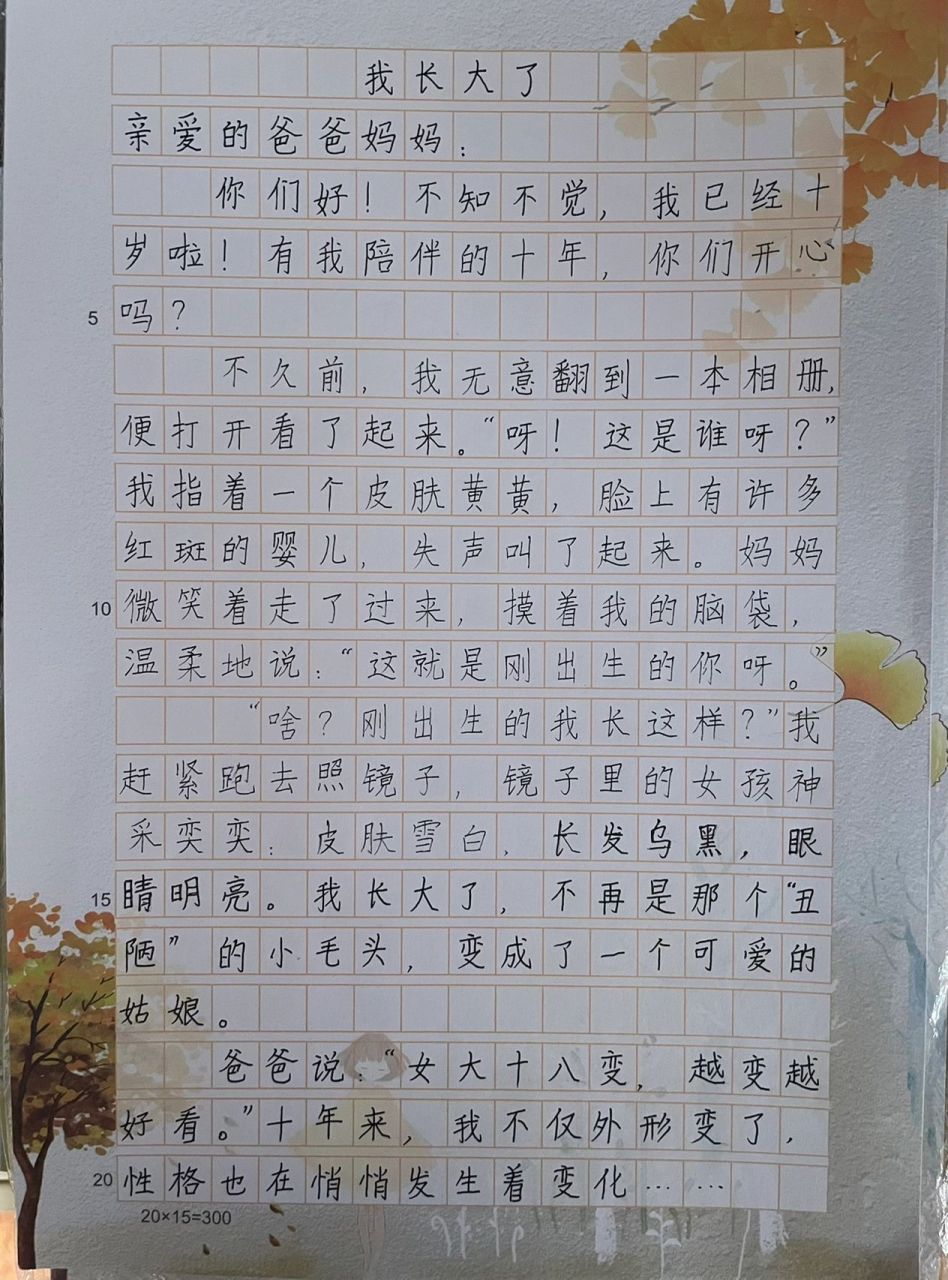 我长大了
亲爱的爸爸妈妈：
你们好！不知不觉，我已经十
岁啦！有我陪伴的十年，你们开心
5
吗？
不久前，我无意翻到一本相册，
便打开看了起来。“呀！这是谁呀？”
我指着一个皮肤黄黄，脸上有许多
红斑的婴儿，失声叫了起来。妈妈
10
微笑着走了过来，摸着我的脑袋，
温柔地说：“这就是刚出生的你呀。”
“啥？刚出生的我长这样？”我
赶紧跑去照镜子，镜子里的女孩神
采奕奕：皮肤雪白，长发乌黑，眼
15
睛明亮。我长大了，不再是那个“丑
陋”的小毛头，变成了一个可爱的
姑娘。
爸爸说：“女大十八变，越变越
好看。”十年来，我不仅外形变了，
20
性格也在悄悄发生着变化……
20×15=300